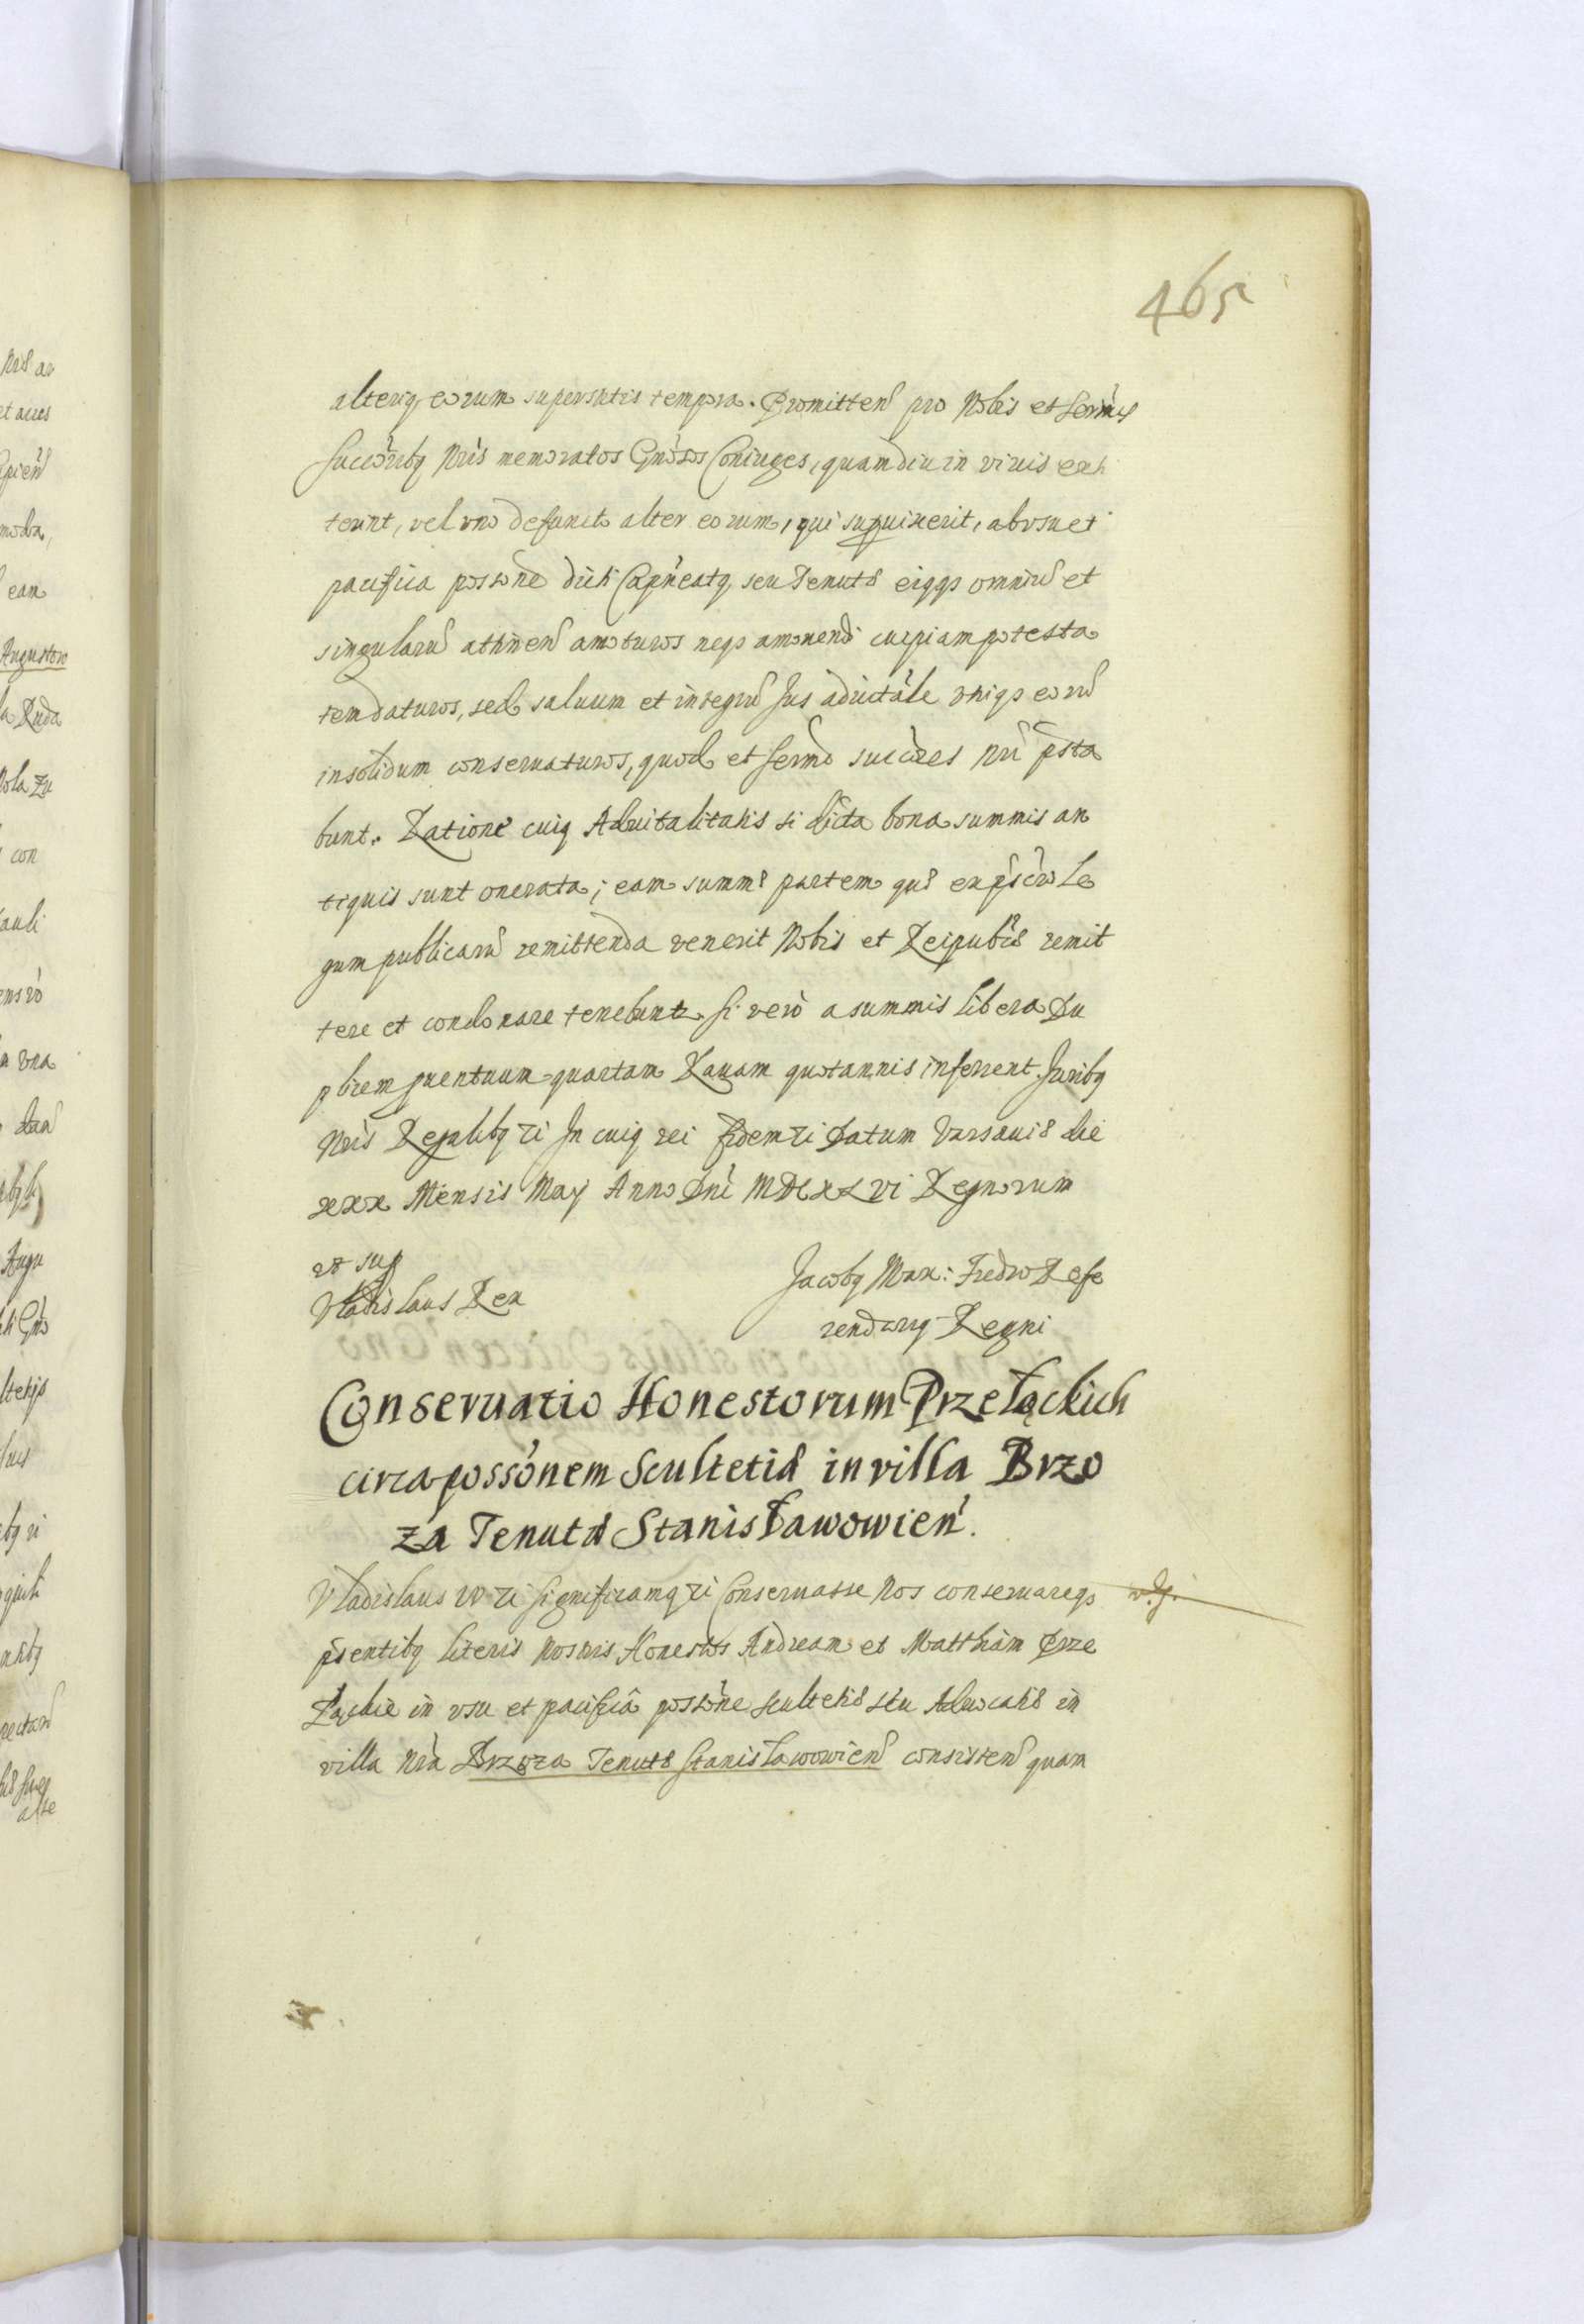 465
alteriq eorum superstitis tempora. Promitten pro Nobis et Sermis
Succoribq Nris memoratos Gnosos Coniuges, quamdiu in viuis exti
terint, vel vno defuncto alter eorum, qui supuixerit, ab vsu et
pacifica possone dicti Capneatq seu Tenutæ eiqqs omniu et
singularu attinen amoturos neqs amouendi cuipiam potesta
tem daturos, sed saluum et integru Jus aduitale vtriqs eoru
insolidum conseruaturos, quod et Sermi succores nri psta
bunt. Ratione cuiq Aduitalitatis si dicta bona summis an
tiquis sunt onerata, eam summæ partem quæ ex pscro Le
gum publicaru remittenda venerit Nobis et Reipubcæ remit
tere et condonare tenebuntr. Si vero a summis libera Du
plicem puentuum quartam Rauam quotannis inferrent. Juribq
Nris Regalibq ri In cuiq rei fidem ri Datum Varsauiæ die
xxx Mensis May Anno Dni MDCXLVI Regnorum
vt sup
Vladislaus Rex
Jacobq Max: Fredro Refe
rendariq Regni
Conseruatio Honestorum Przełąckich
circa possonem Scultetiæ in villa Brzo
za Tenutæ Stanisławowien.
Vladislaus IV ri Significamq ri Conseruasse Nos conseruareqs
psentibq literis nostris Honestos Andream et Matthiam Prze
łąckie in vsu et pacifica possone scultetiæ seu Aduocatiæ in
villa nra Brzoza Tenutæ Stanisławowien consisten quam